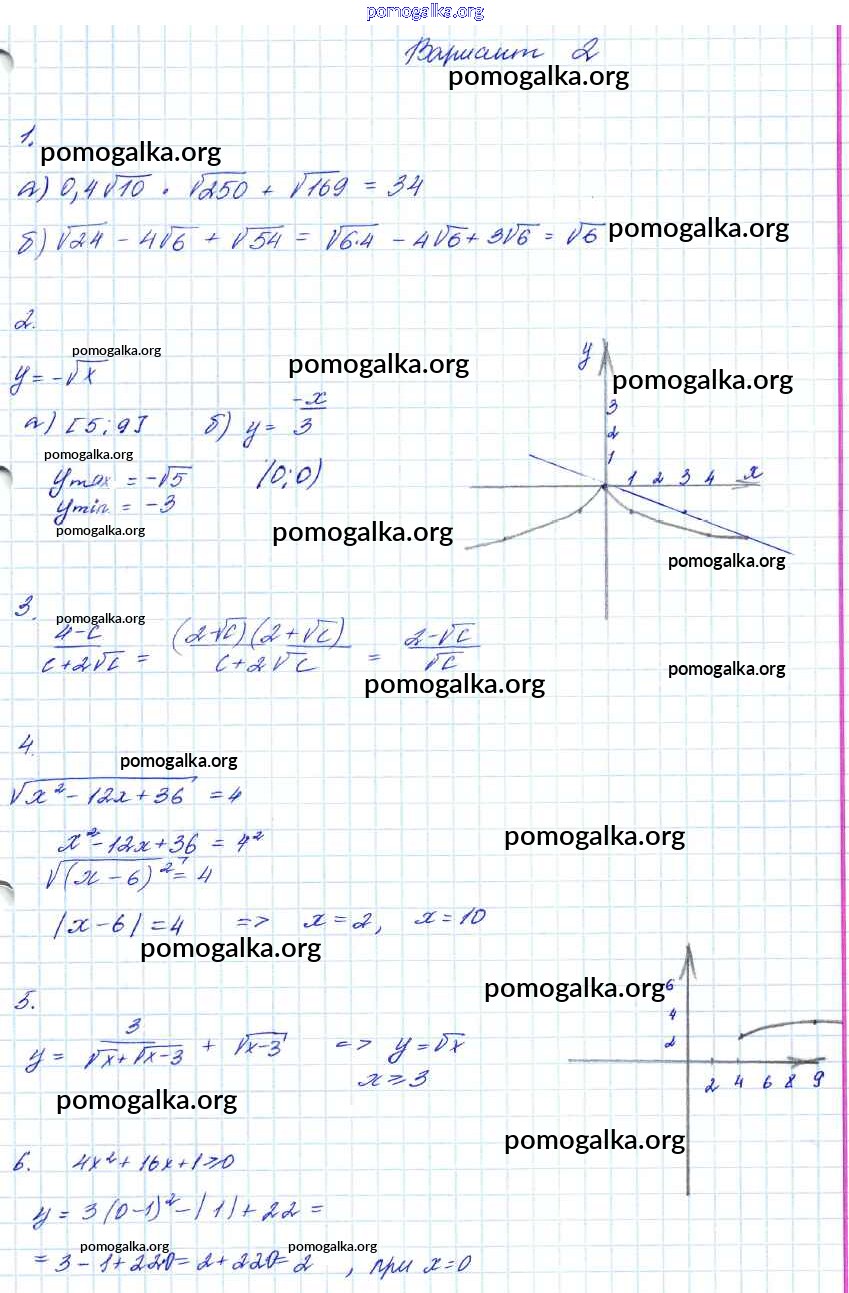 pomogalka.org
Вариант 2
pomogalka.org
1.
pomogalka.org
а) 0,4√10 · √250 + √169 = 34
б) √24 - 4√6 + √54 = √6·4 - 4√6 + 3√6 = √6 pomogalka.org
2.
pomogalka.org
y = -√x
pomogalka.org
а) [5; 9] б) y = -x/3
pomogalka.org
y max = -√5 (0; 0)
y min = -3
pomogalka.org
pomogalka.org
y
pomogalka.org
3
2
1
1 2 3 4 x
pomogalka.org
3.
pomogalka.org
4-c / c+2√c = (2-√c)(2+√c) / c+2√c = 2-√c / √c
pomogalka.org
pomogalka.org
4.
pomogalka.org
√x² - 12x + 36 = 4
x² - 12x + 36 = 4²
pomogalka.org
√(x - 6)² = 4
|x - 6| = 4 => x = 2, x = 10
pomogalka.org
5.
pomogalka.org
y = 3 / √x + √x-3 + √x-3 => y = √x
x ≥ 3
pomogalka.org
6
4
2
2 4 6 8 9
pomogalka.org
6. 4x² + 16x + 1 ≥ 0
y = 3(0-1)² - |1| + 22 =
pomogalka.org pomogalka.org
= 3 - 1 + 220 = 2 + 220 = 2 , при x = 0